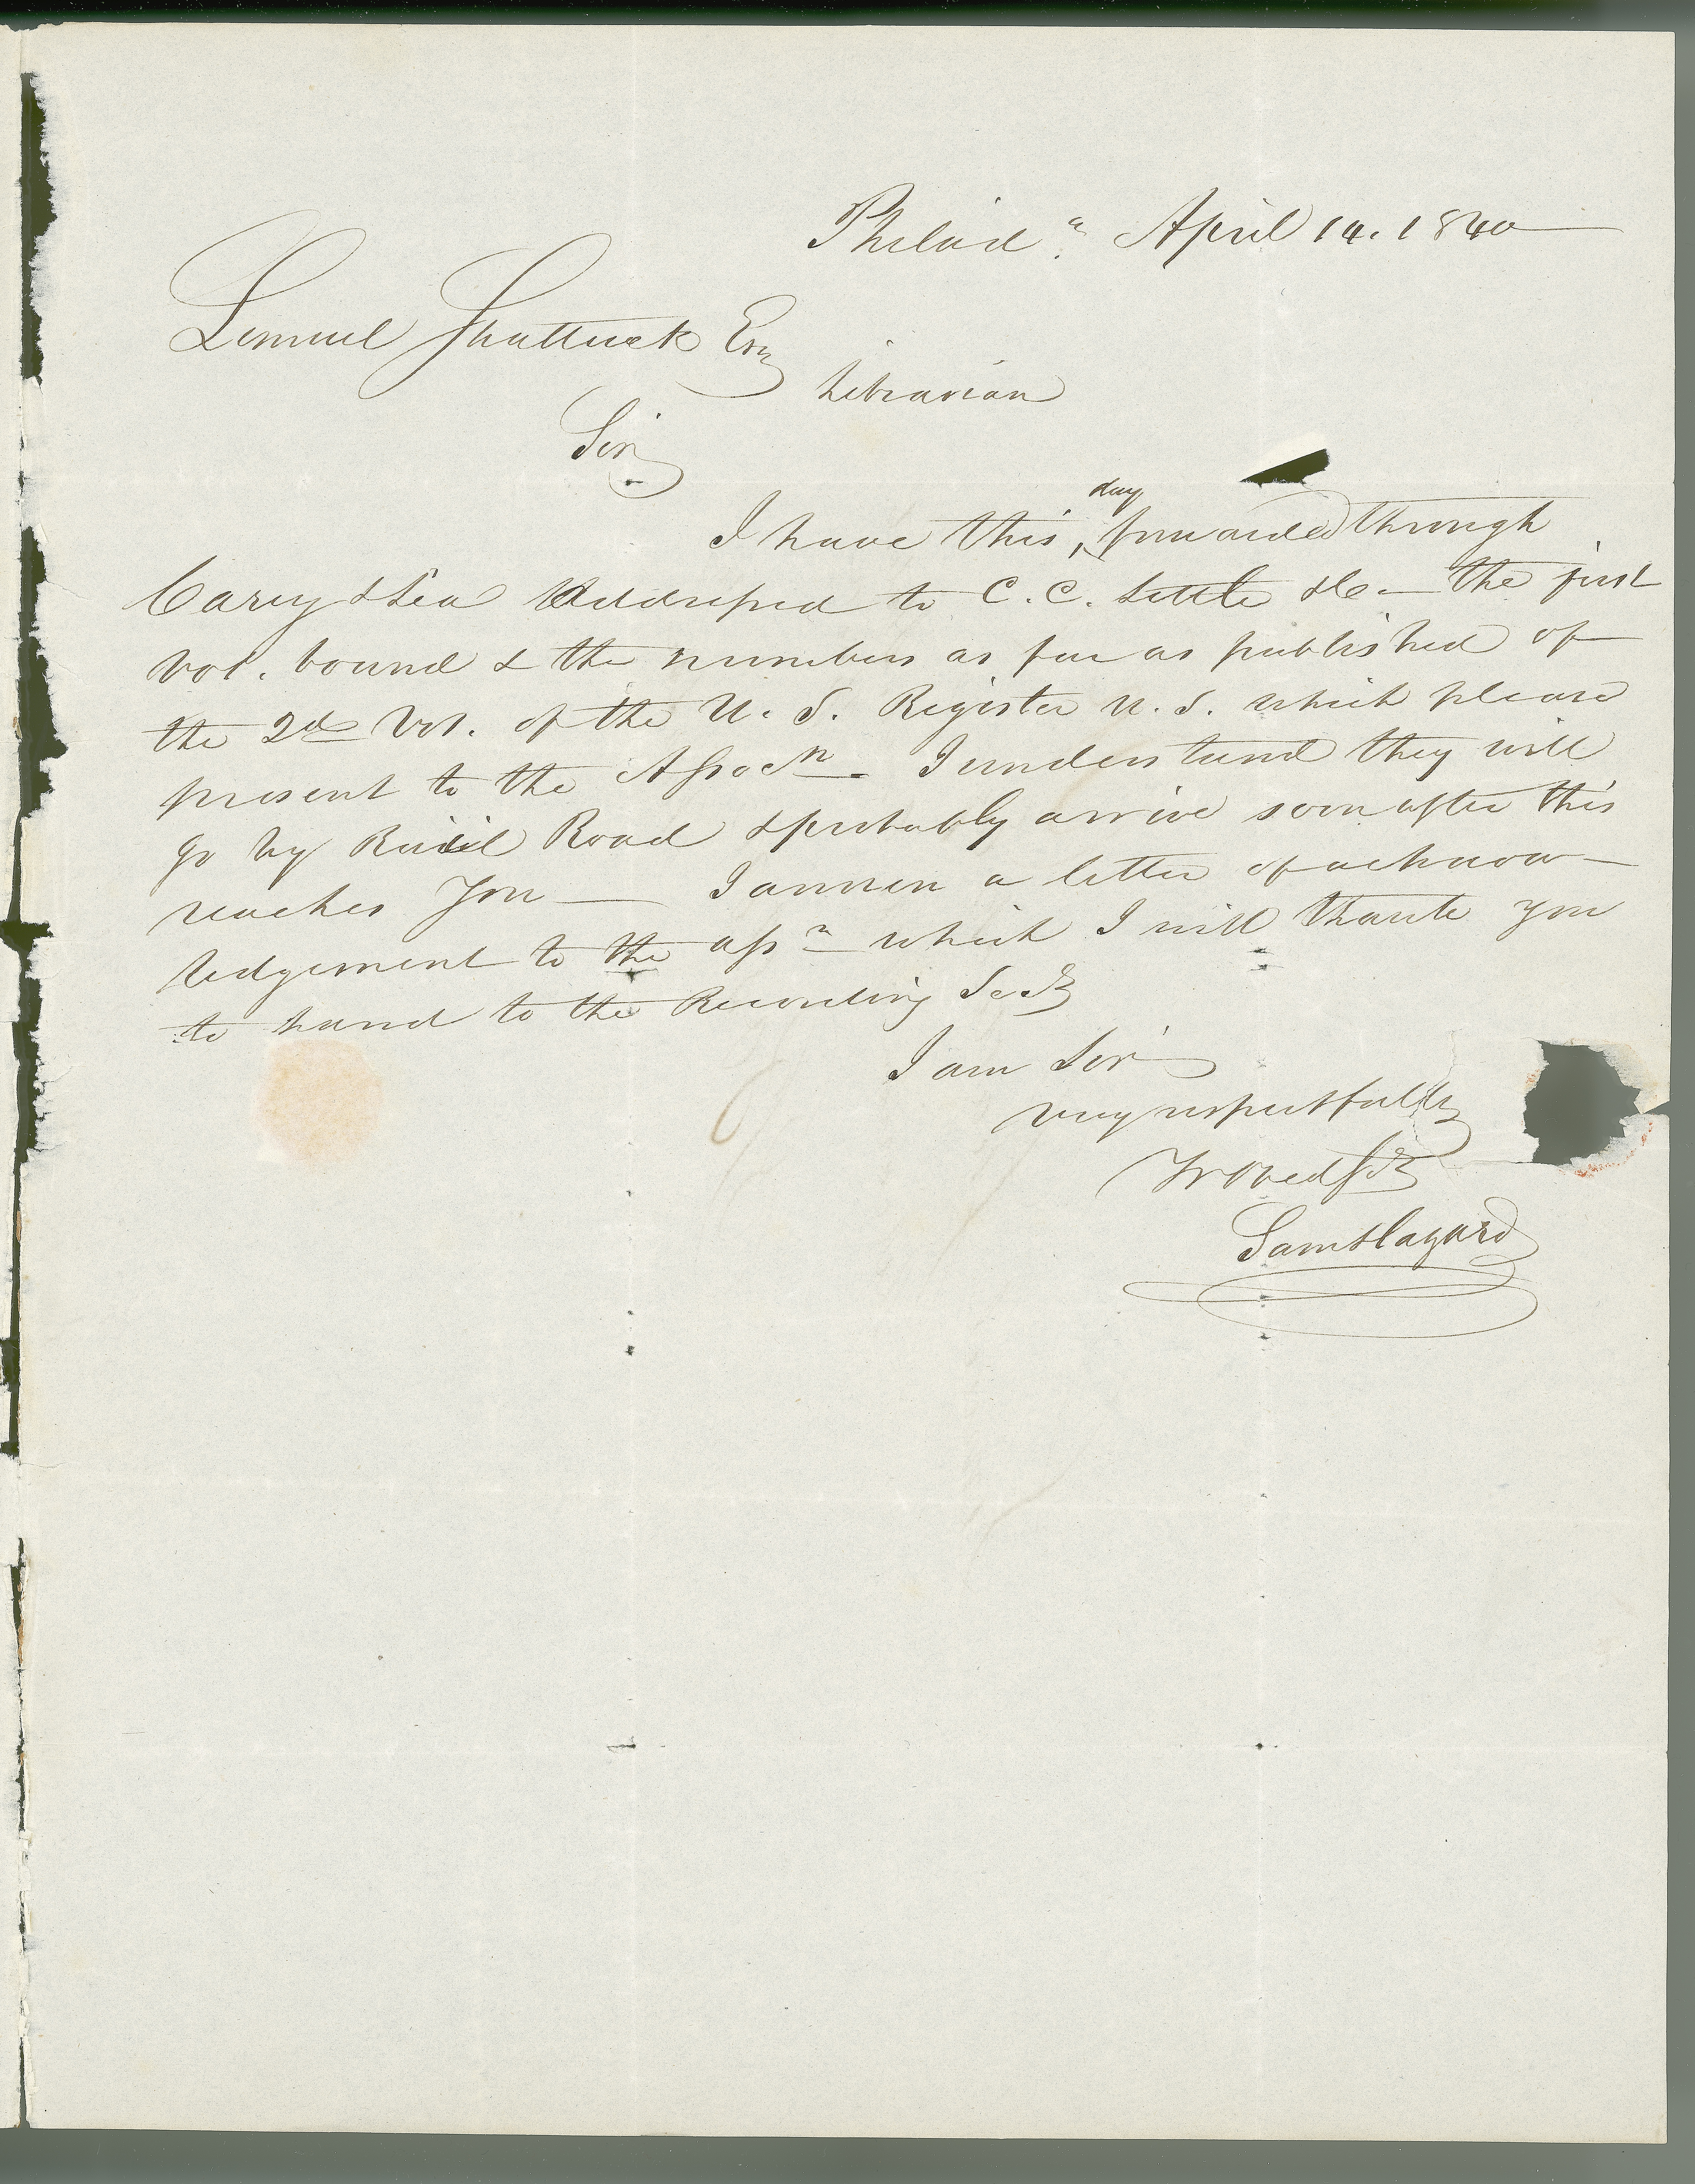 Philad.ᵃ April 14. 1840
Lemuel Shattuck Esq
Librarian
Sir
day
I have this, forwarded through
Carey & Lea Addressed to C. C. Little &c — the first
vol. bound & the numbers as far as published of
the 2d Vol. of the U. S. Register U. S. which please
present to the Assocn. I understand they will
go by Rail Road & probably arrive soon after this
reaches you — I annex a letter of acknow-
ledgement to the assn which I will thank you
to hand to the Recording Secy
I am Sir
very respectfully
Yr Obed St
Saml Hazard